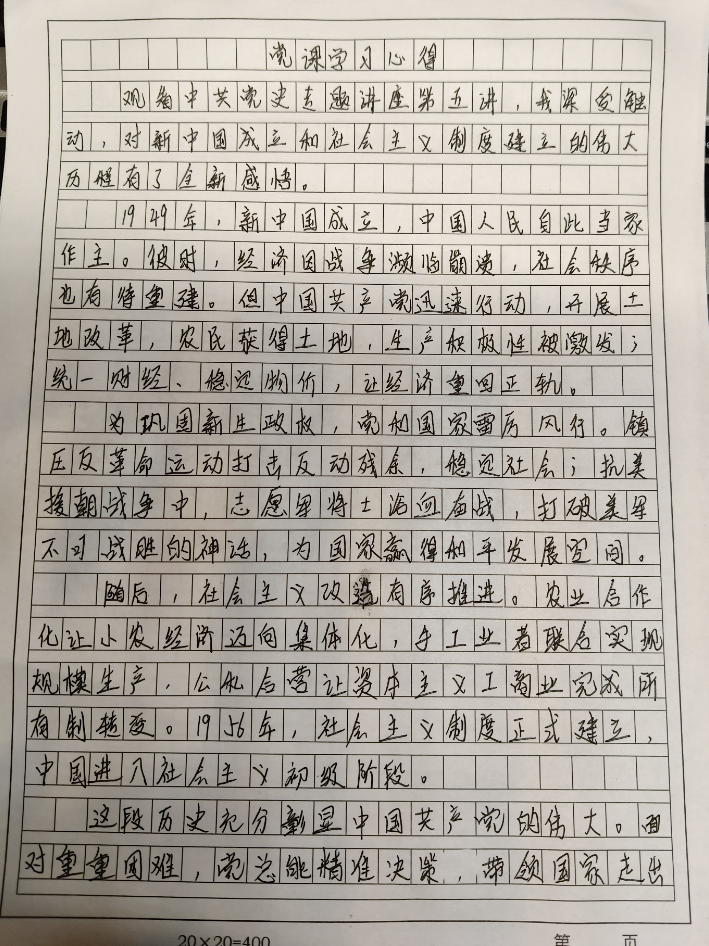 党课学习心得
观看中共党史专题讲座第五讲，我深受触
动，对新中国成立和社会主义制度建立的伟大
历程有了全新感悟。
1949年，新中国成立，中国人民自此当家
作主。彼时，经济因战争濒临崩溃，社会秩序
也有待重建。但中国共产党迅速行动，开展土
地改革，农民获得土地，生产积极性被激发；
统一财经、稳定物价，让经济重回正轨。
为巩固新生政权，党和国家雷厉风行。镇
压反革命运动打击反动残余，稳定社会；抗美
援朝战争中，志愿军将士浴血奋战，打破美军
不可战胜的神话，为国家赢得和平发展空间。
随后，社会主义改造有序推进。农业合作
化让小农经济迈向集体化，手工业者联合实现
规模生产，公私合营让资本主义工商业完成所
有制转变。1956年，社会主义制度正式建立，
中国进入社会主义初级阶段。
这段历史充分彰显中国共产党的伟大。面
对重重困难，党总能精准决策，带领国家走出
20×20=400 第 页